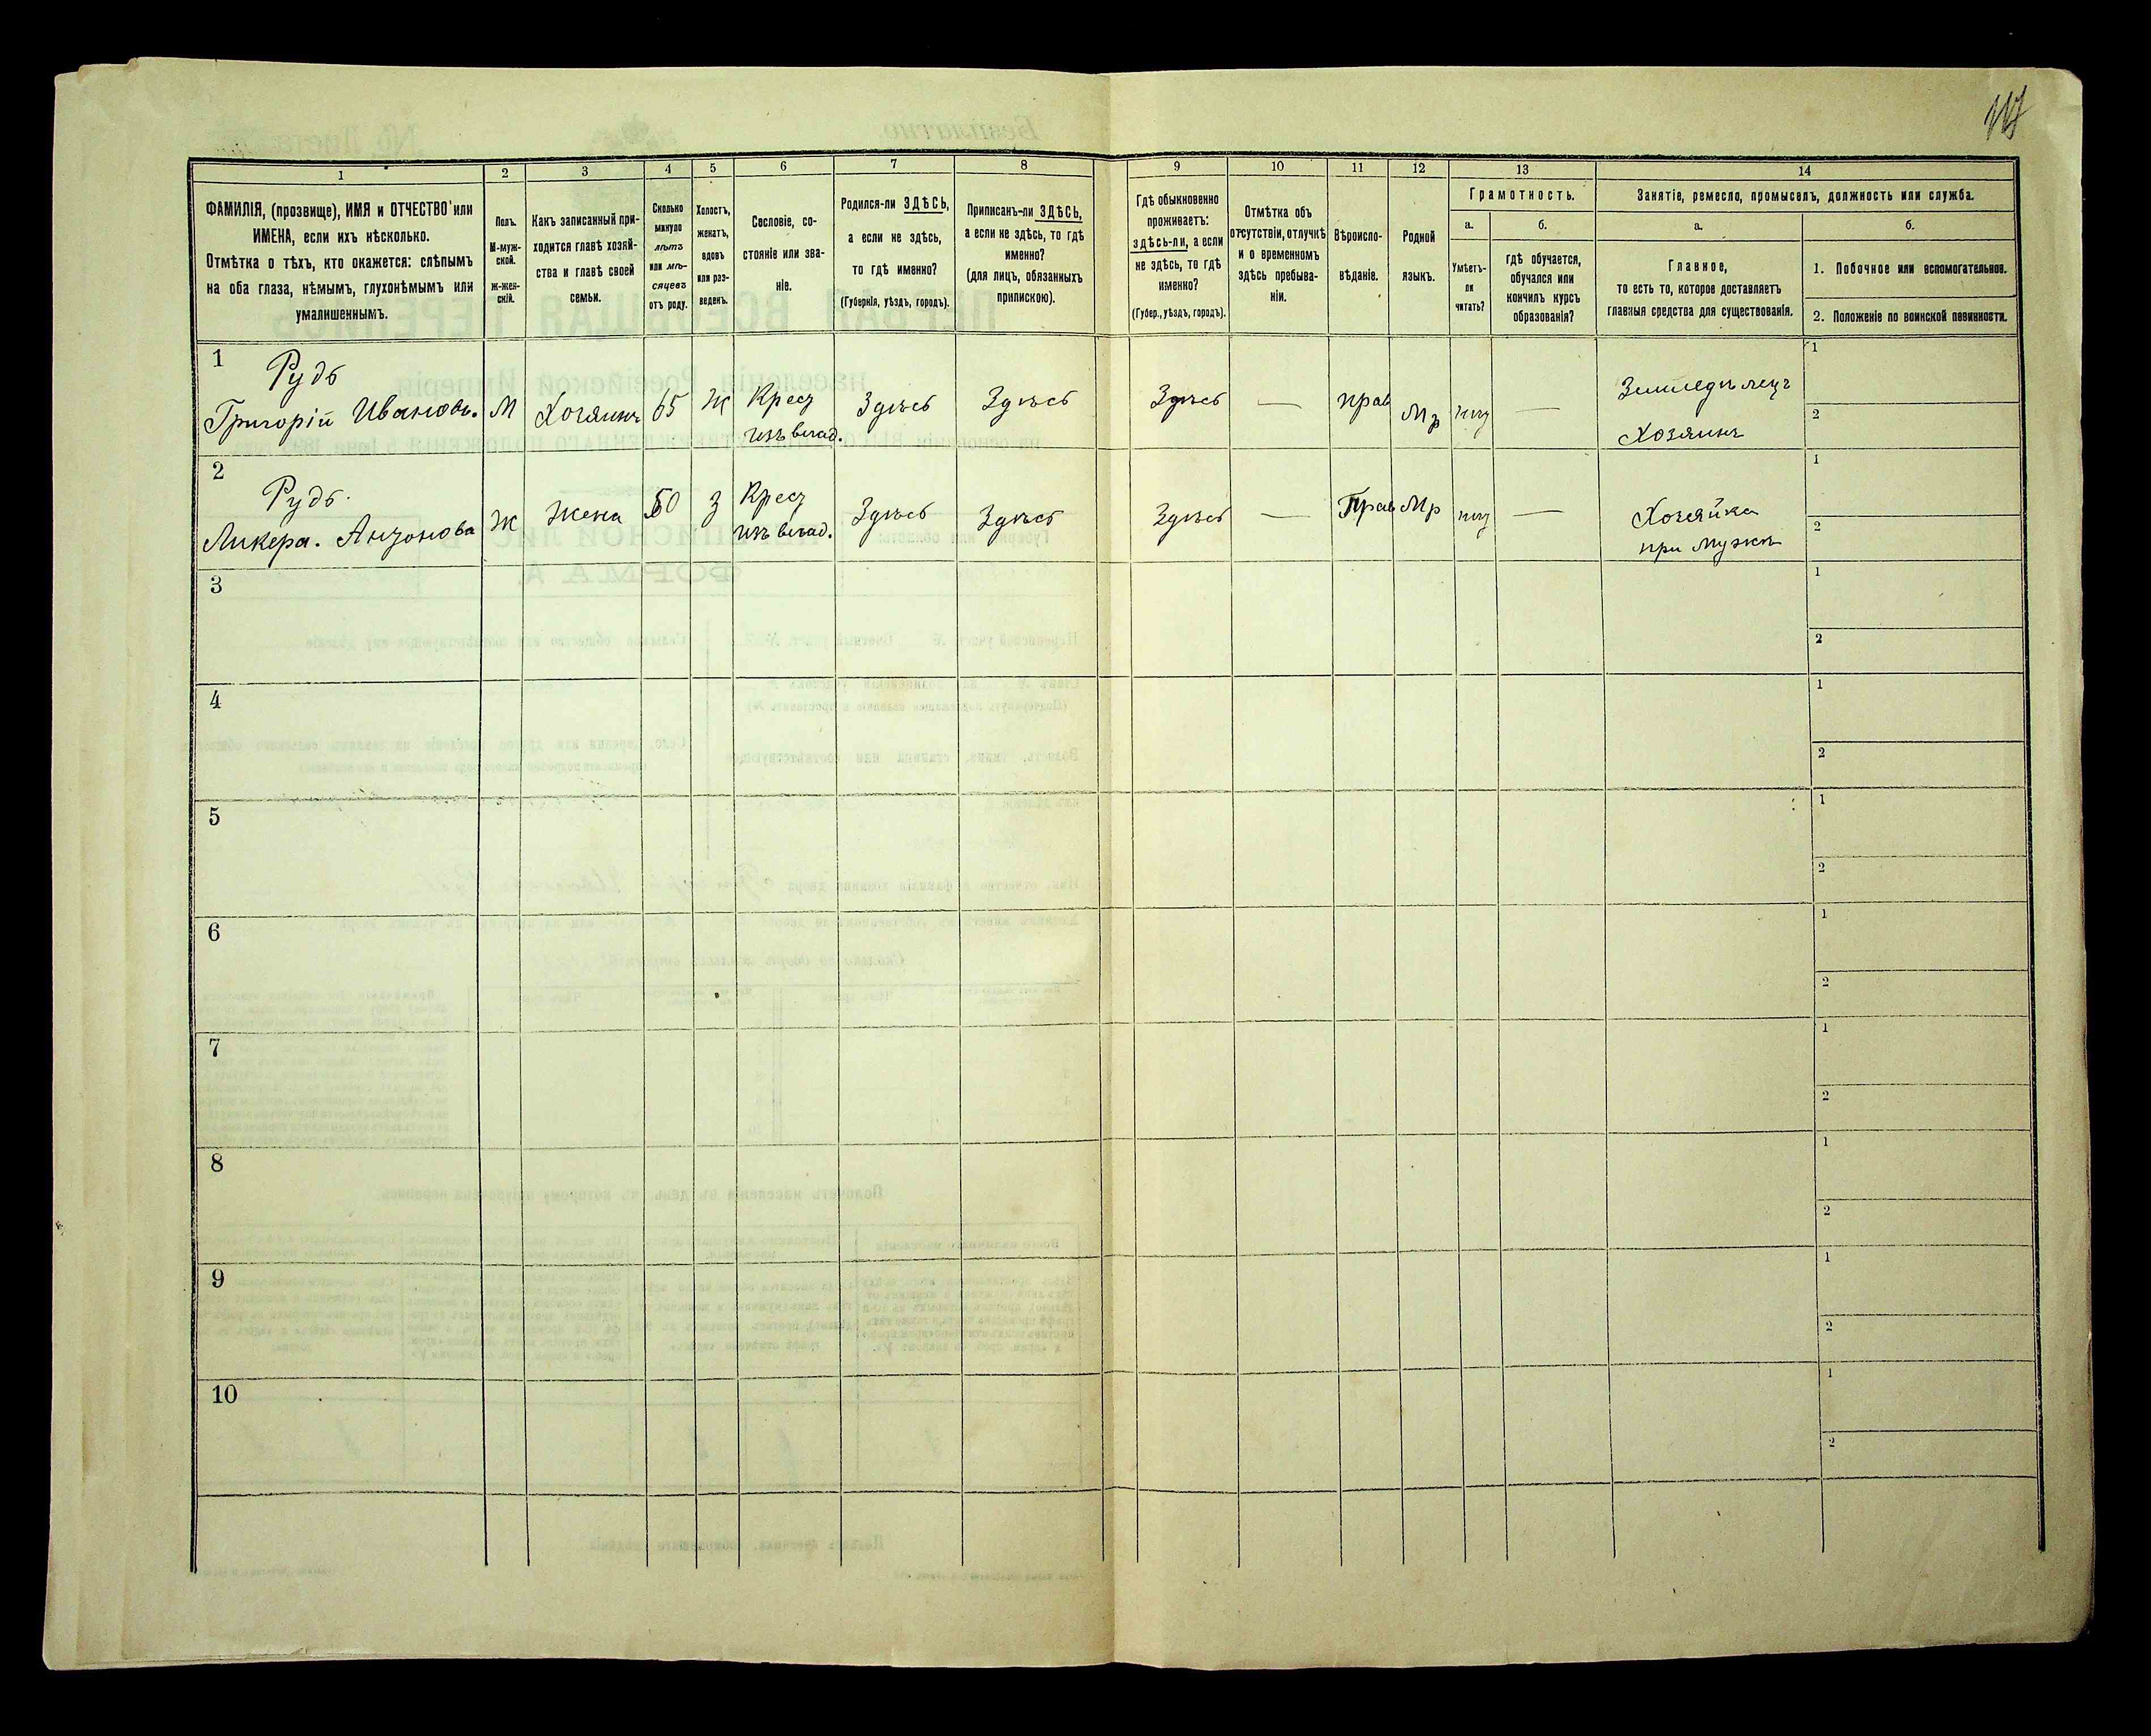 117
1
2
3
4
5
6
7
8
9
10
11
12
13
14
ФАМИЛІЯ, (прозвище), ИМЯ и ОТЧЕСТВО или
ИМЕНА, если ихъ нѣсколько.
Отмѣтка о тѣхъ, кто окажется: слѣпымъ
на оба глаза, нѣмымъ, глухонѣмымъ или
умалишеннымъ.
Полъ.
М-муж-
ской.
Ж-жен-
скій.
Какъ записанный при-
ходится главѣ хозяй-
ства и главѣ своей
семьи.
Сколько
минуло
лѣтъ
или мѣ-
сяцевъ
отъ роду.
Холостъ,
женатъ,
вдовъ
или раз-
веденъ.
Сословіе, со-
стояніе или зва-
ніе.
Родился-ли ЗДѢСЬ,
а если не здѣсь,
то гдѣ именно?
(Губернія, уѣздъ, городъ).
Приписанъ-ли ЗДѢСЬ,
а если не здѣсь, то гдѣ
именно?
(для лицъ, обязанныхъ
припискою).
Гдѣ обыкновенно
проживаетъ:
здѣсь-ли, а если
не здѣсь, то гдѣ
именно?
(Губер., уѣздъ, городъ).
Отмѣтка объ
отсутствіи, отлучкѣ
и о временномъ
здѣсь пребыва-
ніи.
Вѣроиспо-
вѣданіе.
Родной
языкъ.
Грамотность.
а.
Умѣетъ-
ли
читать?
б.
гдѣ обучается,
обучался или
кончилъ курсъ
образованія?
Занятіе, ремесло, промыселъ, должность или служба.
а.
Главное,
то есть то, которое доставляетъ
главныя средства для существованія.
б.
1. Побочное или вспомогательное.
2. Положеніе по воинской повинности.
1
Рудь
Григорій Иванов.
М
Хозяинъ
65
Ж
Крест
изъ влад.
Здѣсь
Здѣсь
Здѣсь
—
прав
Мр
нѣт
—
Земледѣлецъ
Хозяинъ
1
2
2
Рудь.
Ликера. Антонова
Ж
Жена
60
З
Крест
изъ влад.
Здѣсь
Здѣсь
Здѣсь
—
Прав
Мр
нѣт
—
Хозяйка
при мужѣ
1
2
3
1
2
4
1
2
5
1
2
6
1
2
7
1
2
8
1
2
9
1
2
10
1
2